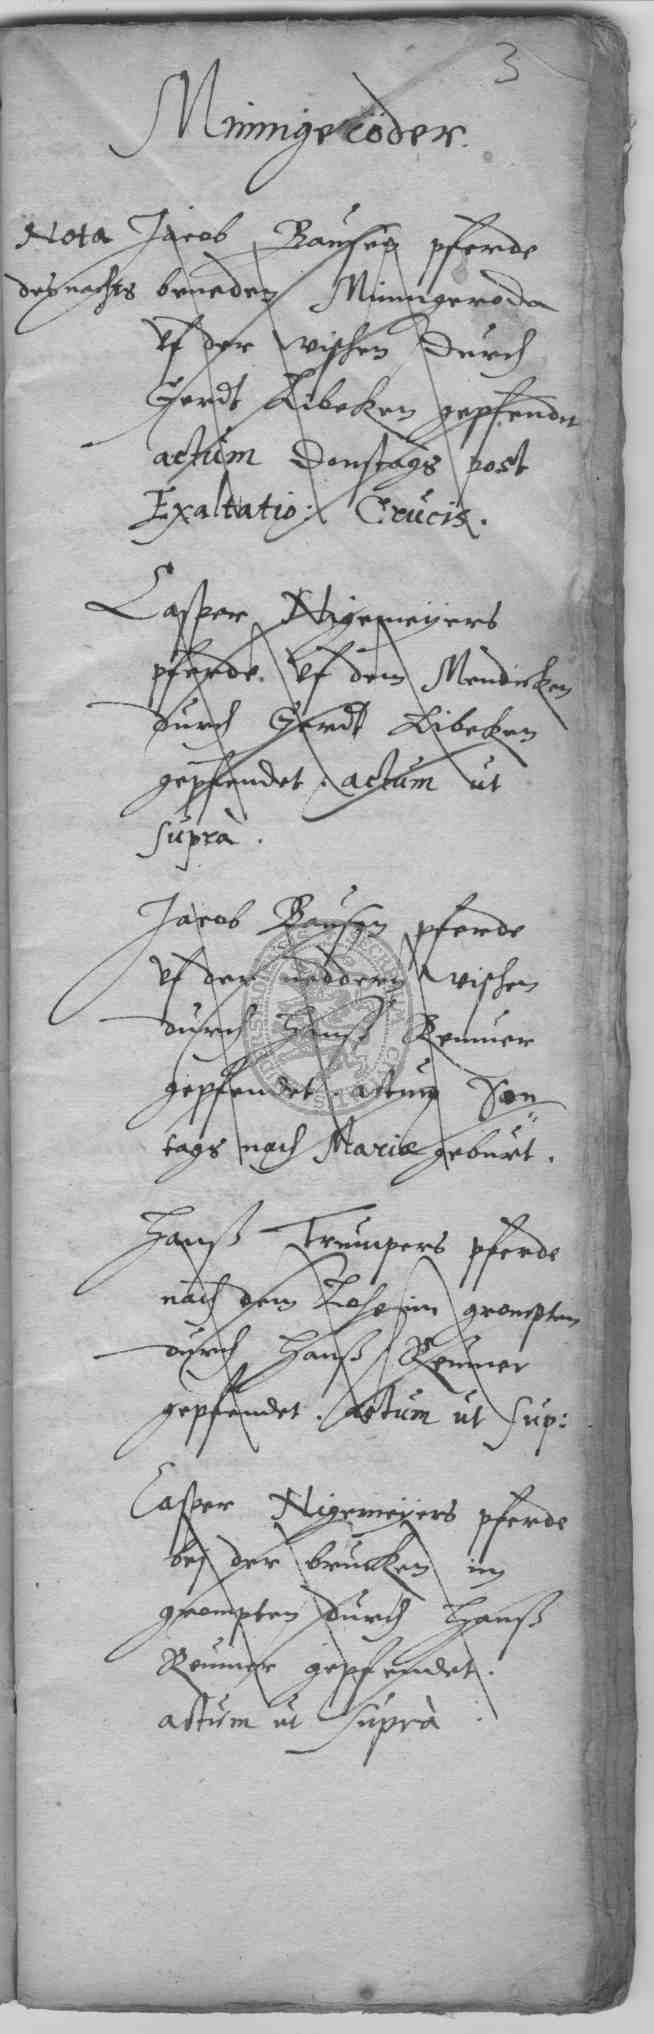 3
Minnigeröder.
Nota Jacob Bausen pferde
des nachts beneden Minnigeroda
uf der wischen durch
Gerdt Libeken gepfendet
actum Donstags post
Exaltatio: Crucis.
Casper Nigemeyers
pferde uf dem Mendicken
durch Gerdt Libeken
gepfendet. actum ut
suprà.
Jacob Bausen pferde
uf der neddern wischen
durch Hanß Remmer
gepfendet. actum Son
tags nach Mariæ geburt.
Hanß Trumpers pferde
nach dem Lohe im grompten
durch Hanß Remmer
gepfendet. actum ut sup:
Casper Nigemeyers pferde
bej der brucken im
grompten durch Hanß
Remmer gepfendet.
actum ut suprà